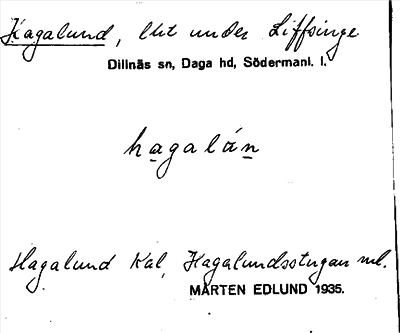 Hagalund, lht under Liffsinge
Dillnäs sn, Daga hd, Södermanl. l.
hagalán
Hagalund Kal, Hagalundsstugan ml.
MÅRTEN EDLUND 1935.